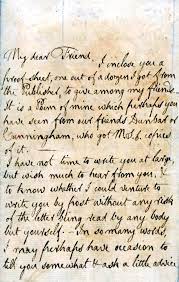 My dear Friend,
I inclose you a
proof-sheet, one out of a dozen I got from
the Publisher, to give among my friends.
It is a Poem of mine which perhaps you
have seen from our friends Dunbar or
Cunningham, who got copies
of it.
I have not time to write you at large,
but wish much to hear from you, &
to know whether I could venture to
write you by post without any risk
of the letter being read by any body
but yourself. — In so many words,
I may perhaps have occasion to
tell you somewhat & ask a little advice